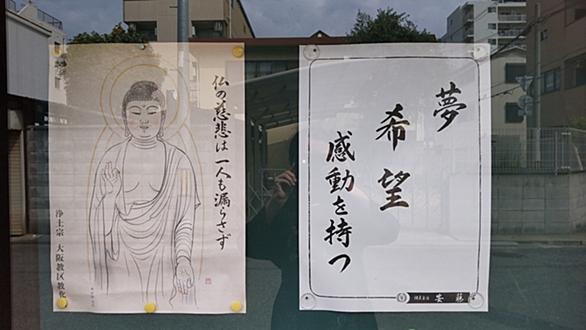 仏の慈悲は一人も漏らさず
浄土宗 大阪教区教化
夢
希望
感動を持つ